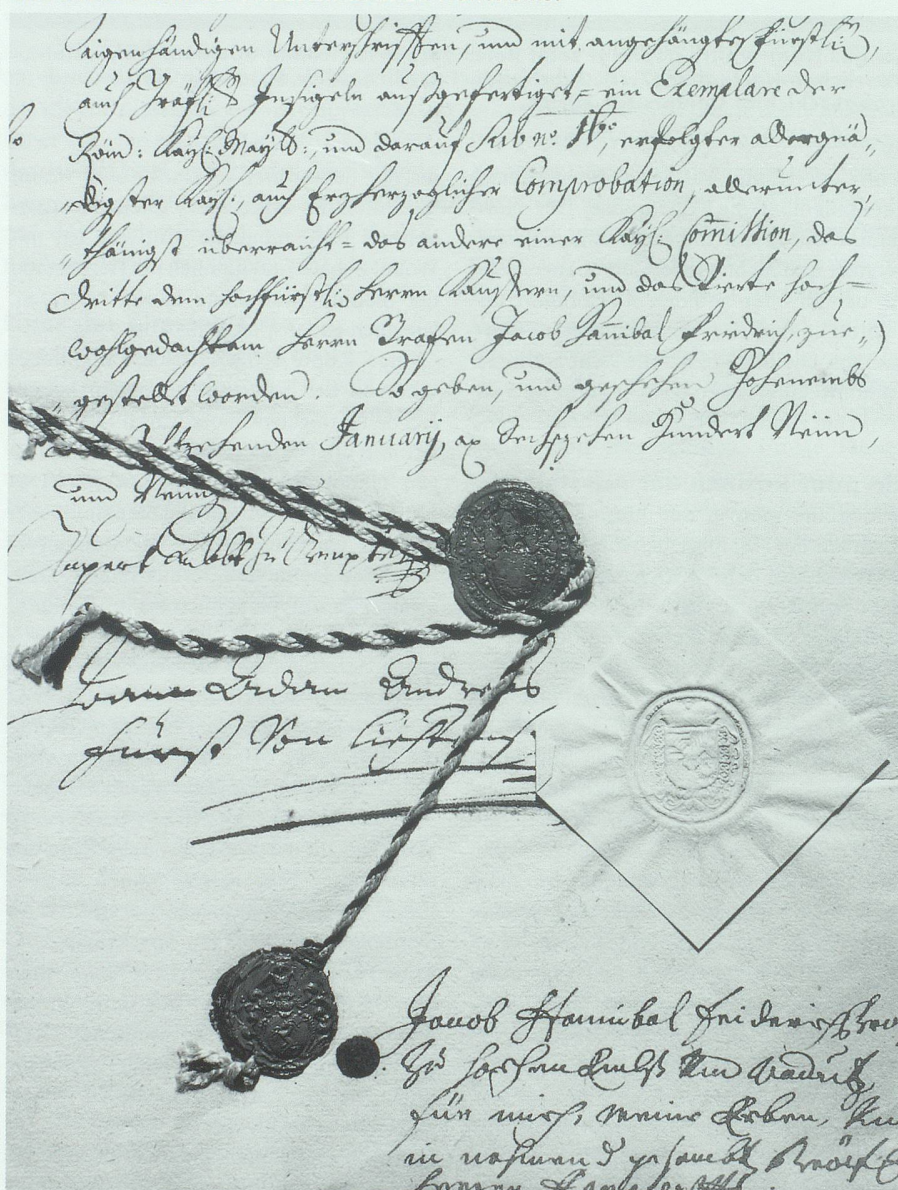 aigenhändigen Unterschrifften, und mit angehängten fürstlich,
auch Gräfl: Insigeln außgefertiget = ein Exemplare der
Röm: Kayl: Mayt:, und darauf sub no: erfolgter allergnä„
„digster Kayl:, auch Erzherzoglicher Comprobation, allerunter„
„thänigst überraicht = das andere einer Kayl: Comission, das
dritte dem hochfürstl: Herrn Kauffern, und das Vierte hoch=
wohlgedachtem Herrn Grafen Jacob Hannibal Friedrich, zue„
„gestellt worden. So geben, und geschehen Hohenembs
January, ao Sechszehen Hundert Neün,
und Neünz
Rupert Abbt zu Kempten
Joann Adam Andreas
Fürst Von Liechtens
Jacob Hannibal Friderich
Zu hochen Embß Vnd Vadutz
für mich, meine Erben, Vn
in nahmen d gesambt